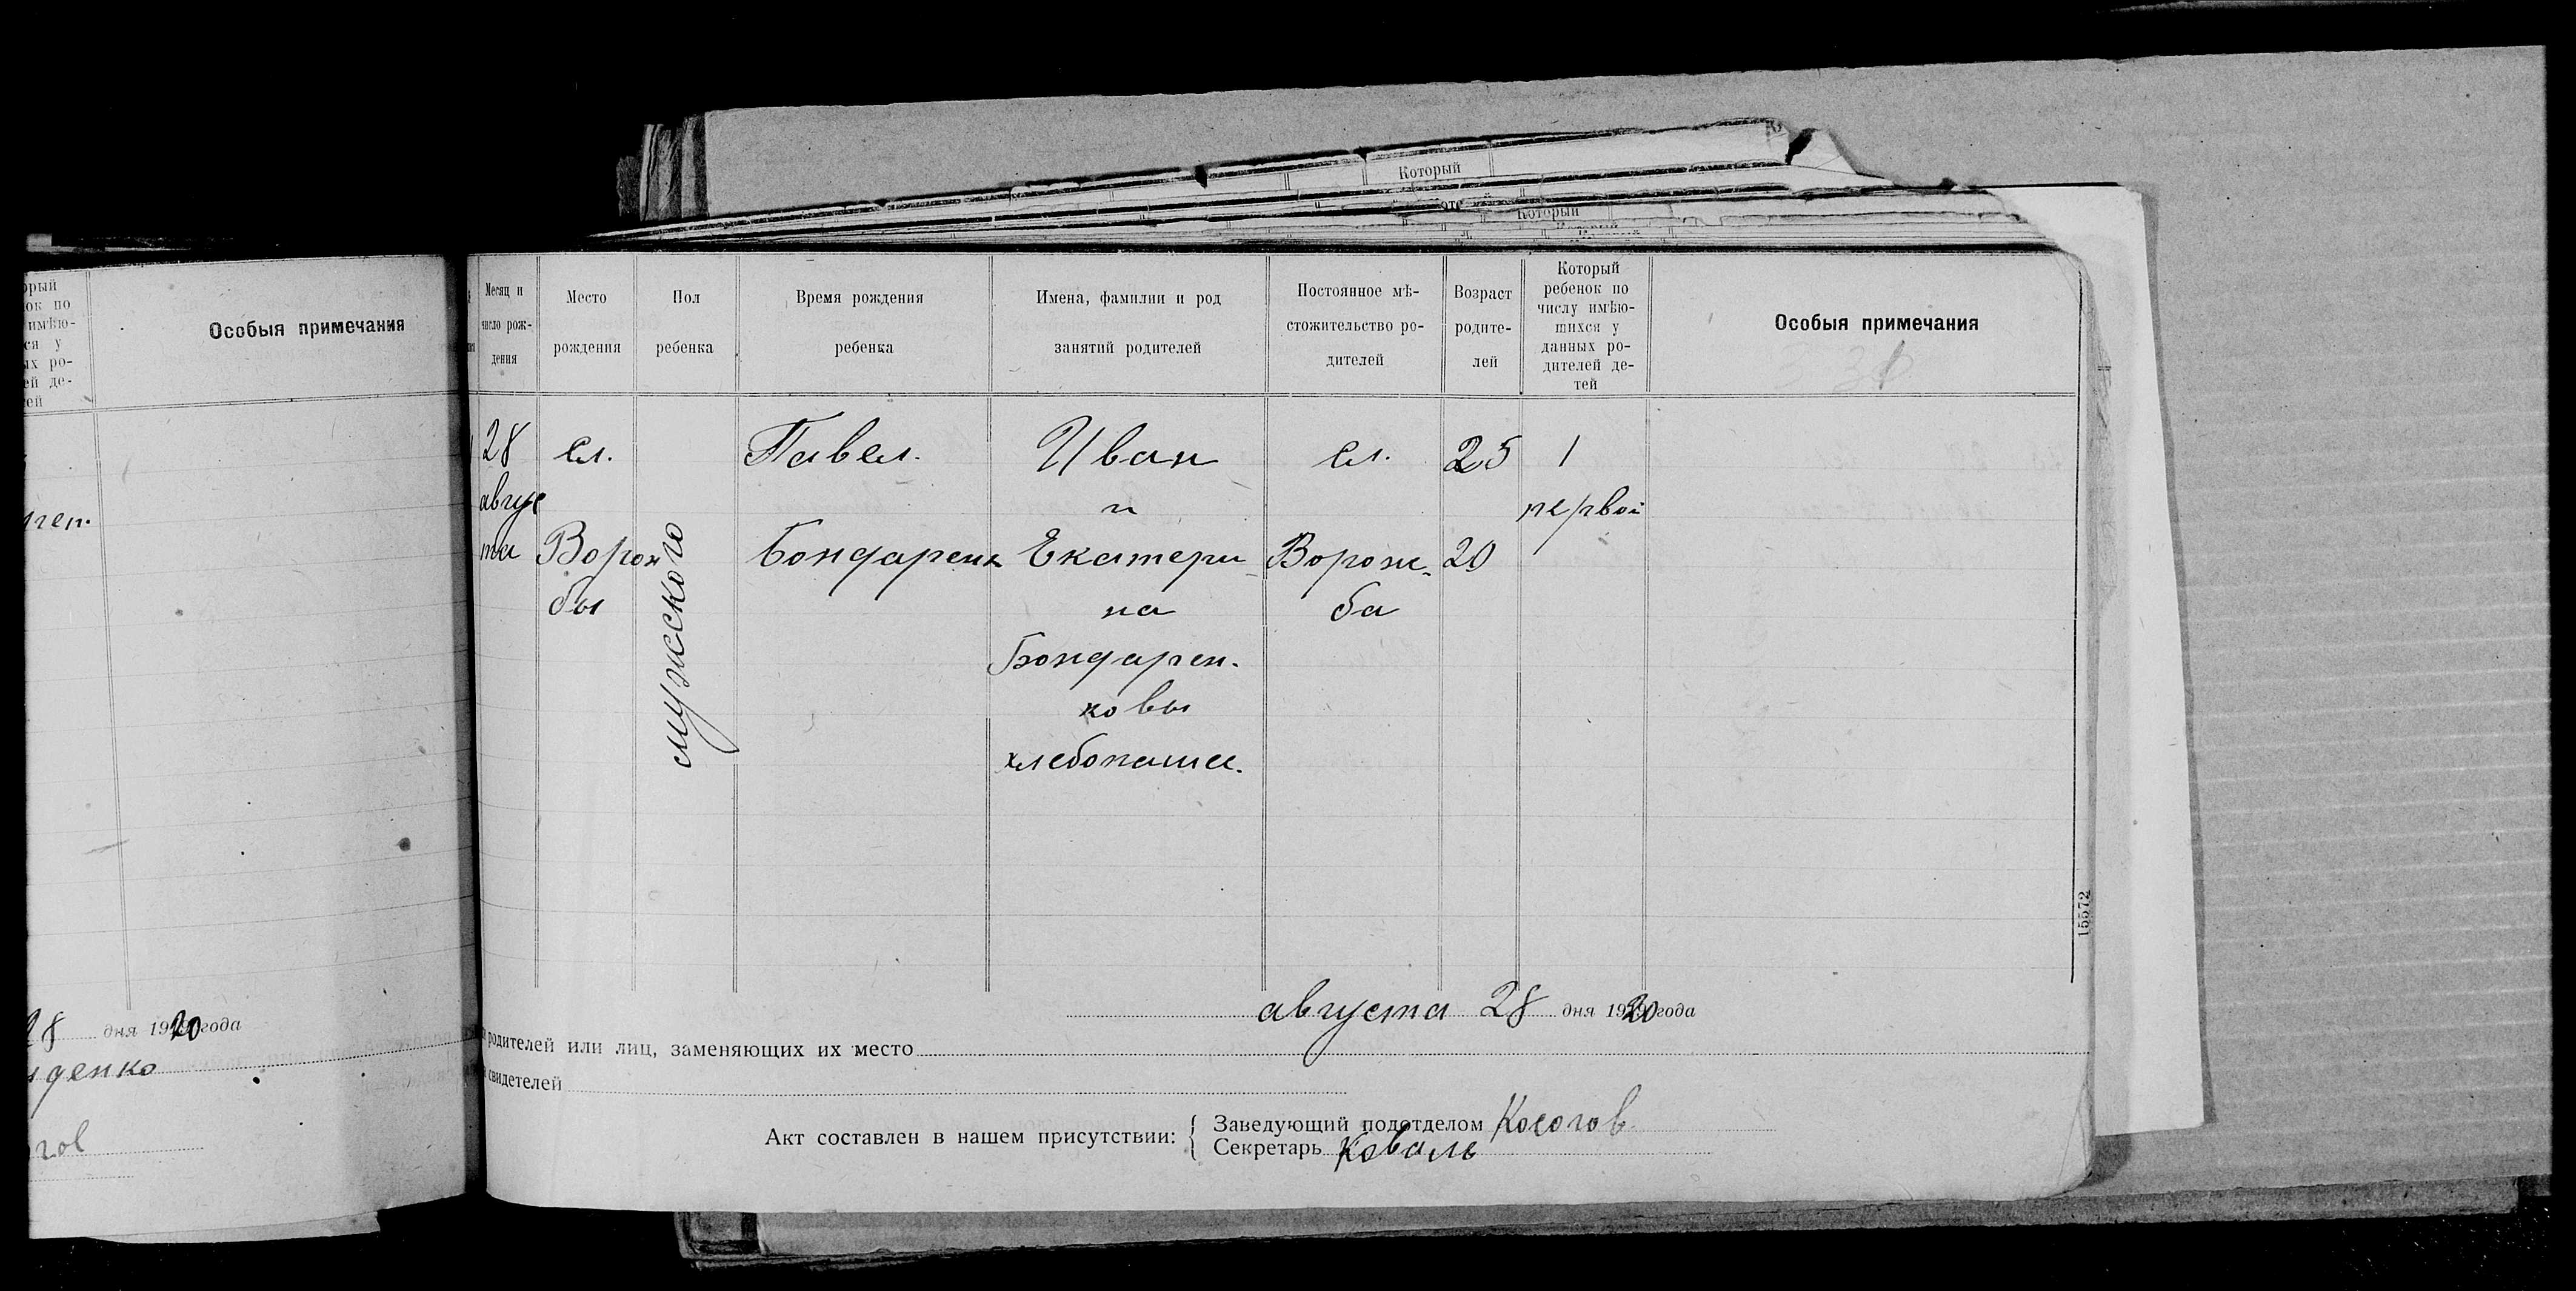 Который
Который
орый
ок по
имѣю-
ся у
ых ро-
ей де-
ей
Особыя примечания
28 дня 1920 года
денко
Месяц и
число рож-
дения
Место
рождения
Пол
ребенка
Время рождения
ребенка
Имена, фамилии и род
занятий родителей
Постоянное мѣ-
стожительство ро-
дителей
Возраст
родите-
лей
Который
ребенок по
числу имѣю-
шихся у
данных ро-
дителей де-
тей
Особыя примечания
28
авгус
та
сл.
Ворож
бы
мужского
Павел.
Бондаренк
Иван
и
Екатери
на
Бондарен.
ковы
хлебопашес.
сл.
Ворож.
ба
25
20
1
первой
15572
августа 28 дня 1920 года
родителей или лиц, заменяющих их место
свидетелей
Акт составлен в нашем присутствии:
Заведующий подотделом Косогов
Секретарь Коваль